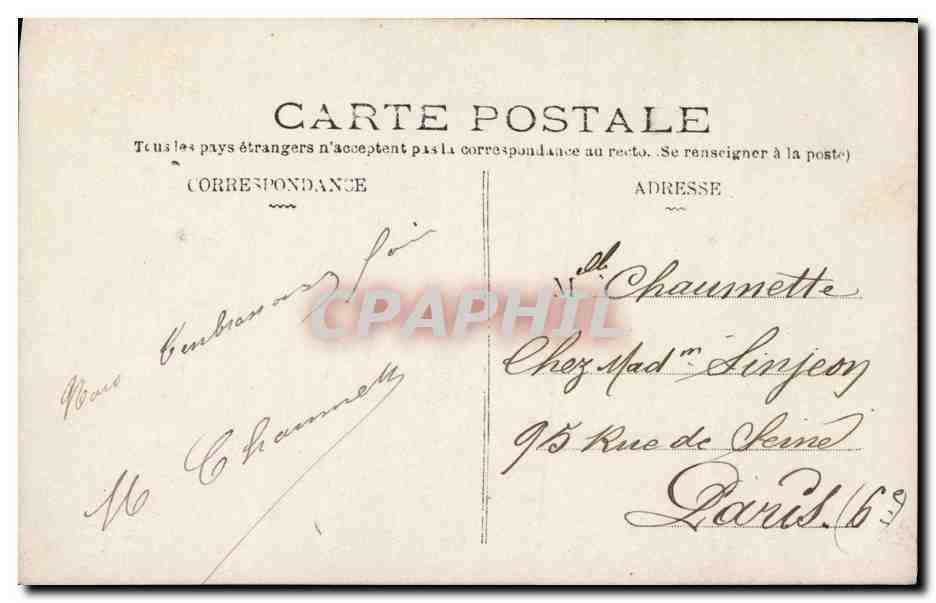 CARTE POSTALE
Tous les pays étrangers n'acceptent pas la correspondance au recto. (Se renseigner à la poste)
CORRESPONDANCE
ADRESSE
M Chaumett
Melle Chaumette
Chez Madm Sinjeon
95 Rue de Seine
Paris. (6e)
CPAPHIL